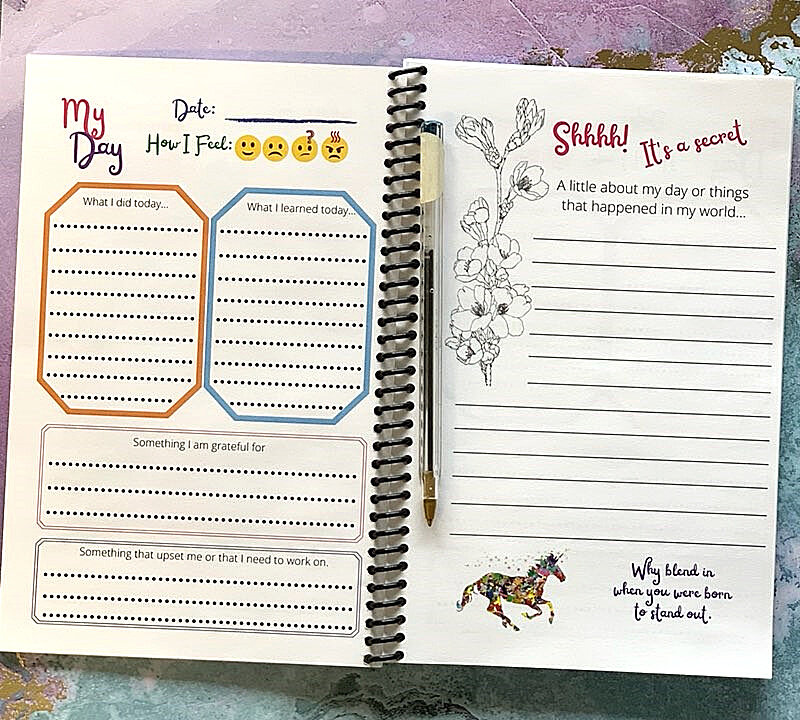 My
Day
Date:
How I Feel:
?
What I did today...
What I learned today...
Something I am grateful for
Something that upset me or that I need to work on.
Shhhh! It's a secret
A little about my day or things
that happened in my world...
Why blend in
when you were born
to stand out.